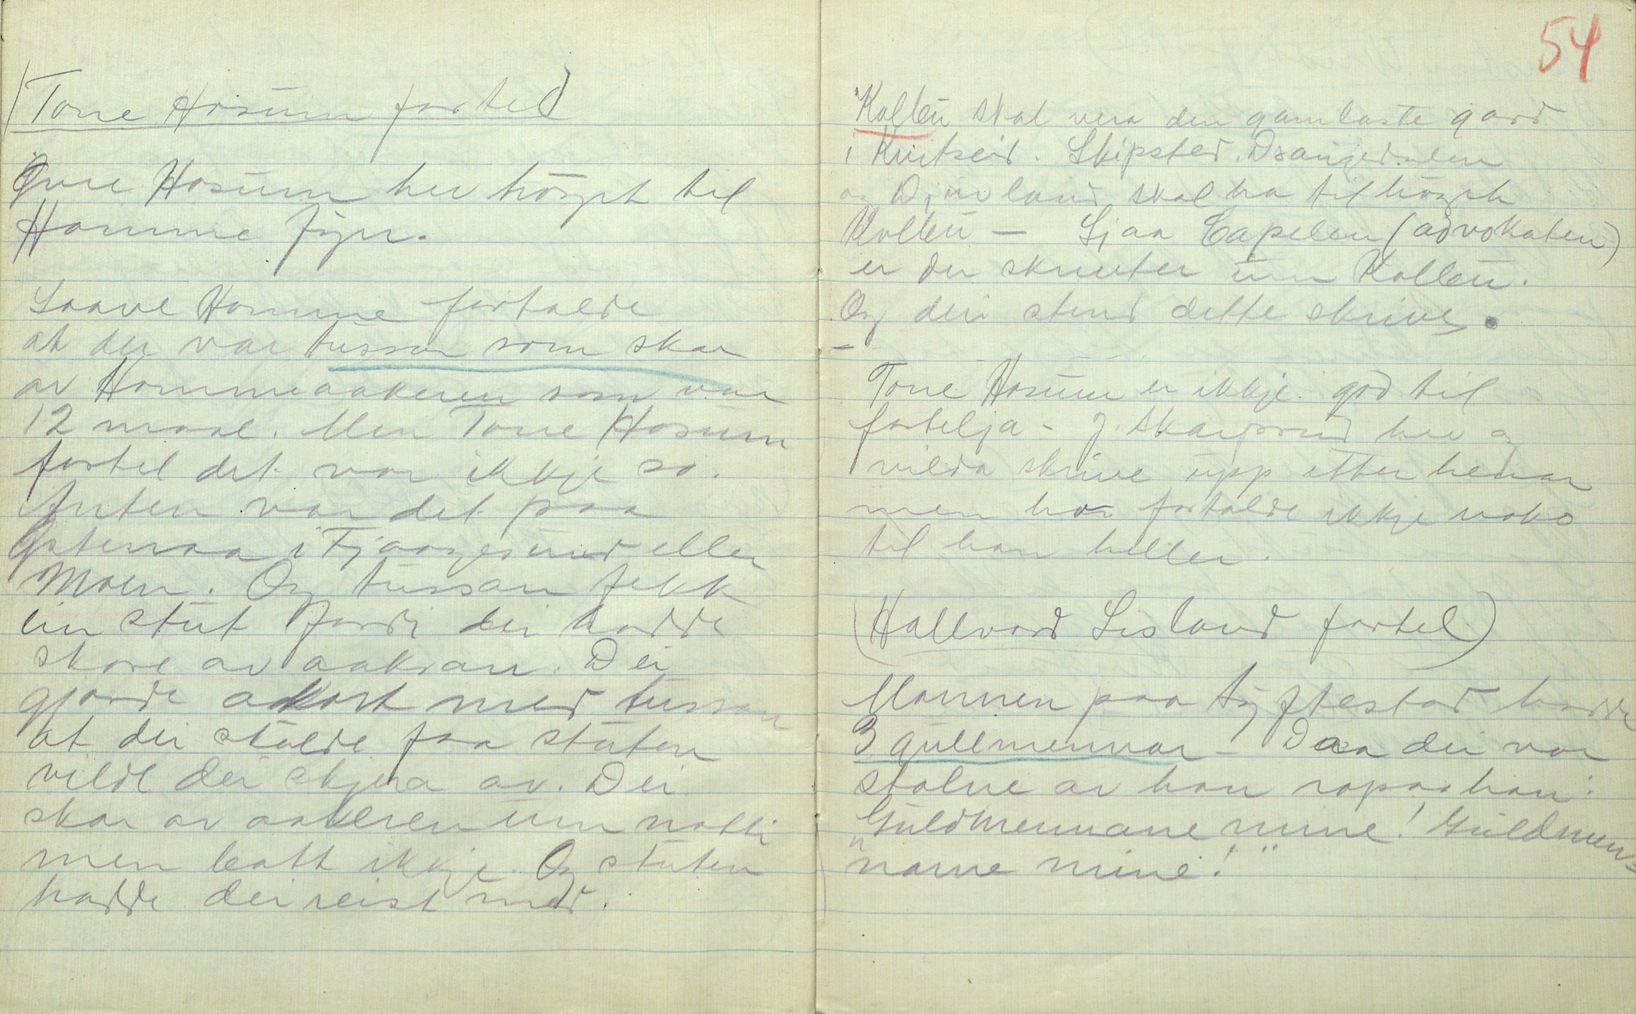 (Tone Hosum fortel)
Øvre Hosum hev høyrt til
Homme fyrr.
Saave Homme fortalde
at der var tussar som skar
av Hommeaakeren som var
12 maal. Men Tone Hosum
fortel det var ikkje so.
Anten var det paa
i Fjaagesund eller
Moen. Og tussan fekk
ein stut fordi dei hadde
skore av aakran. Dei
gjorde akkort med tussan
at dei skulde faa stuten
vilde dei skjera av. Dei
skar av aakeren um natti
men batt ikkje. Og stuten
hadde dei reist med.
54
"Kolleu skal vera den gamlaste gard
i Kviteseid. Skipsted. Drangedalen
og Djuvland skal ha tilhøyrt
Kolleu — Sjaa Capelen (advokaten)
er der skrivter um Kolleu.
Og dei stend dette skrive.
Tone Hosum er ikkje god til
fortelja - J. Skarprud hev og
vilda skrive upp etter henar
men ho fortalde ikkje noko
til han heller.
(Hallvord Lisland fortel)
Mannen paa Tyftestad hadde
3 gullmennar - Daa dei var
stolne av han ropar han:
"Guldmennane mine! Guldmen=
nane mine!"